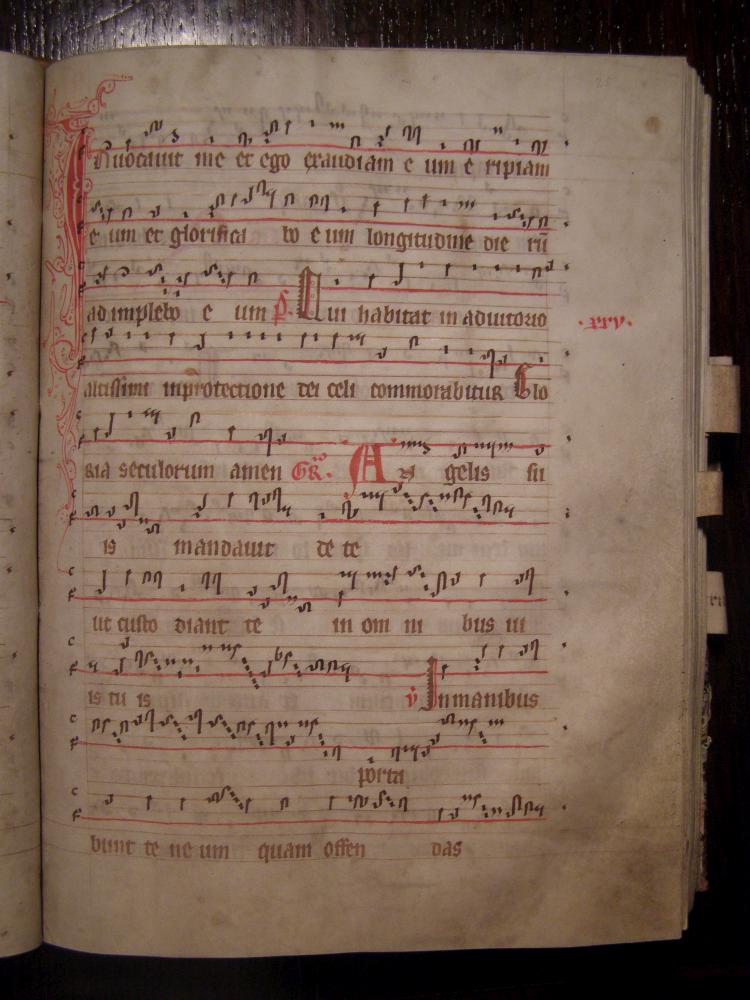 Inuocauit me et ego exaudiam e um e ripiam
e um et glorifica bo e um longitudine die rū
ad implebo e um ps. Qui habitat in adiutorio
·xxv·
altissimi in protectione dei celi commorabitur Glo
ria seculorum amen Gr̄. An gelis su
is mandauit de te
ut custo diant te in om ni bus ui
is tu is v̄ In manibus
porta
bunt te ne um quam offen das